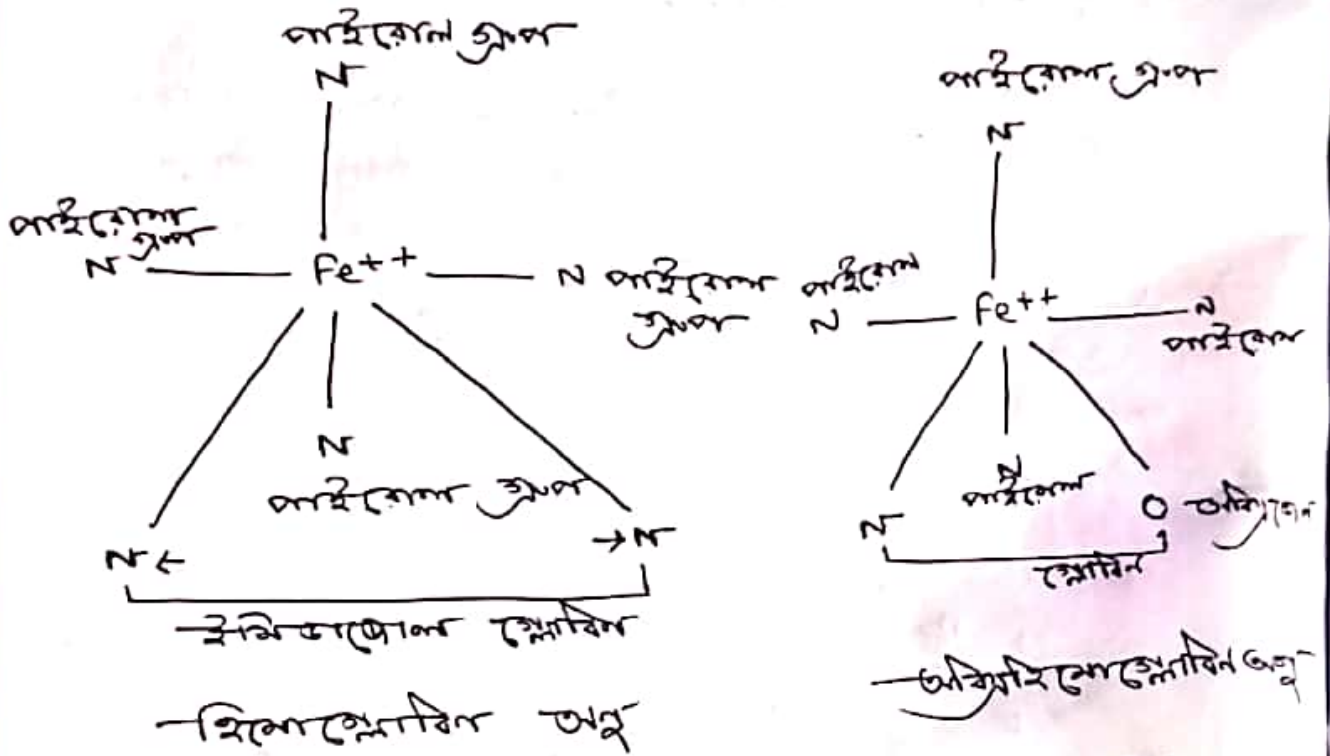 পাইরোল গ্রুপ
N
পাইরোল
গ্রুপ
N
Fe++
N পাইরোল
গ্রুপ
N
পাইরোল গ্রুপ
N ←
→ N
ইমিডাজোল গ্লোবিন
হিমোগ্লোবিন অনু
পাইরোল গ্রুপ
N
পাইরোল
N
Fe++
N
পাইরোল
N
পাইরোল
N
O অক্সিজেন
গ্লোবিন
অক্সিহিমোগ্লোবিন অনু